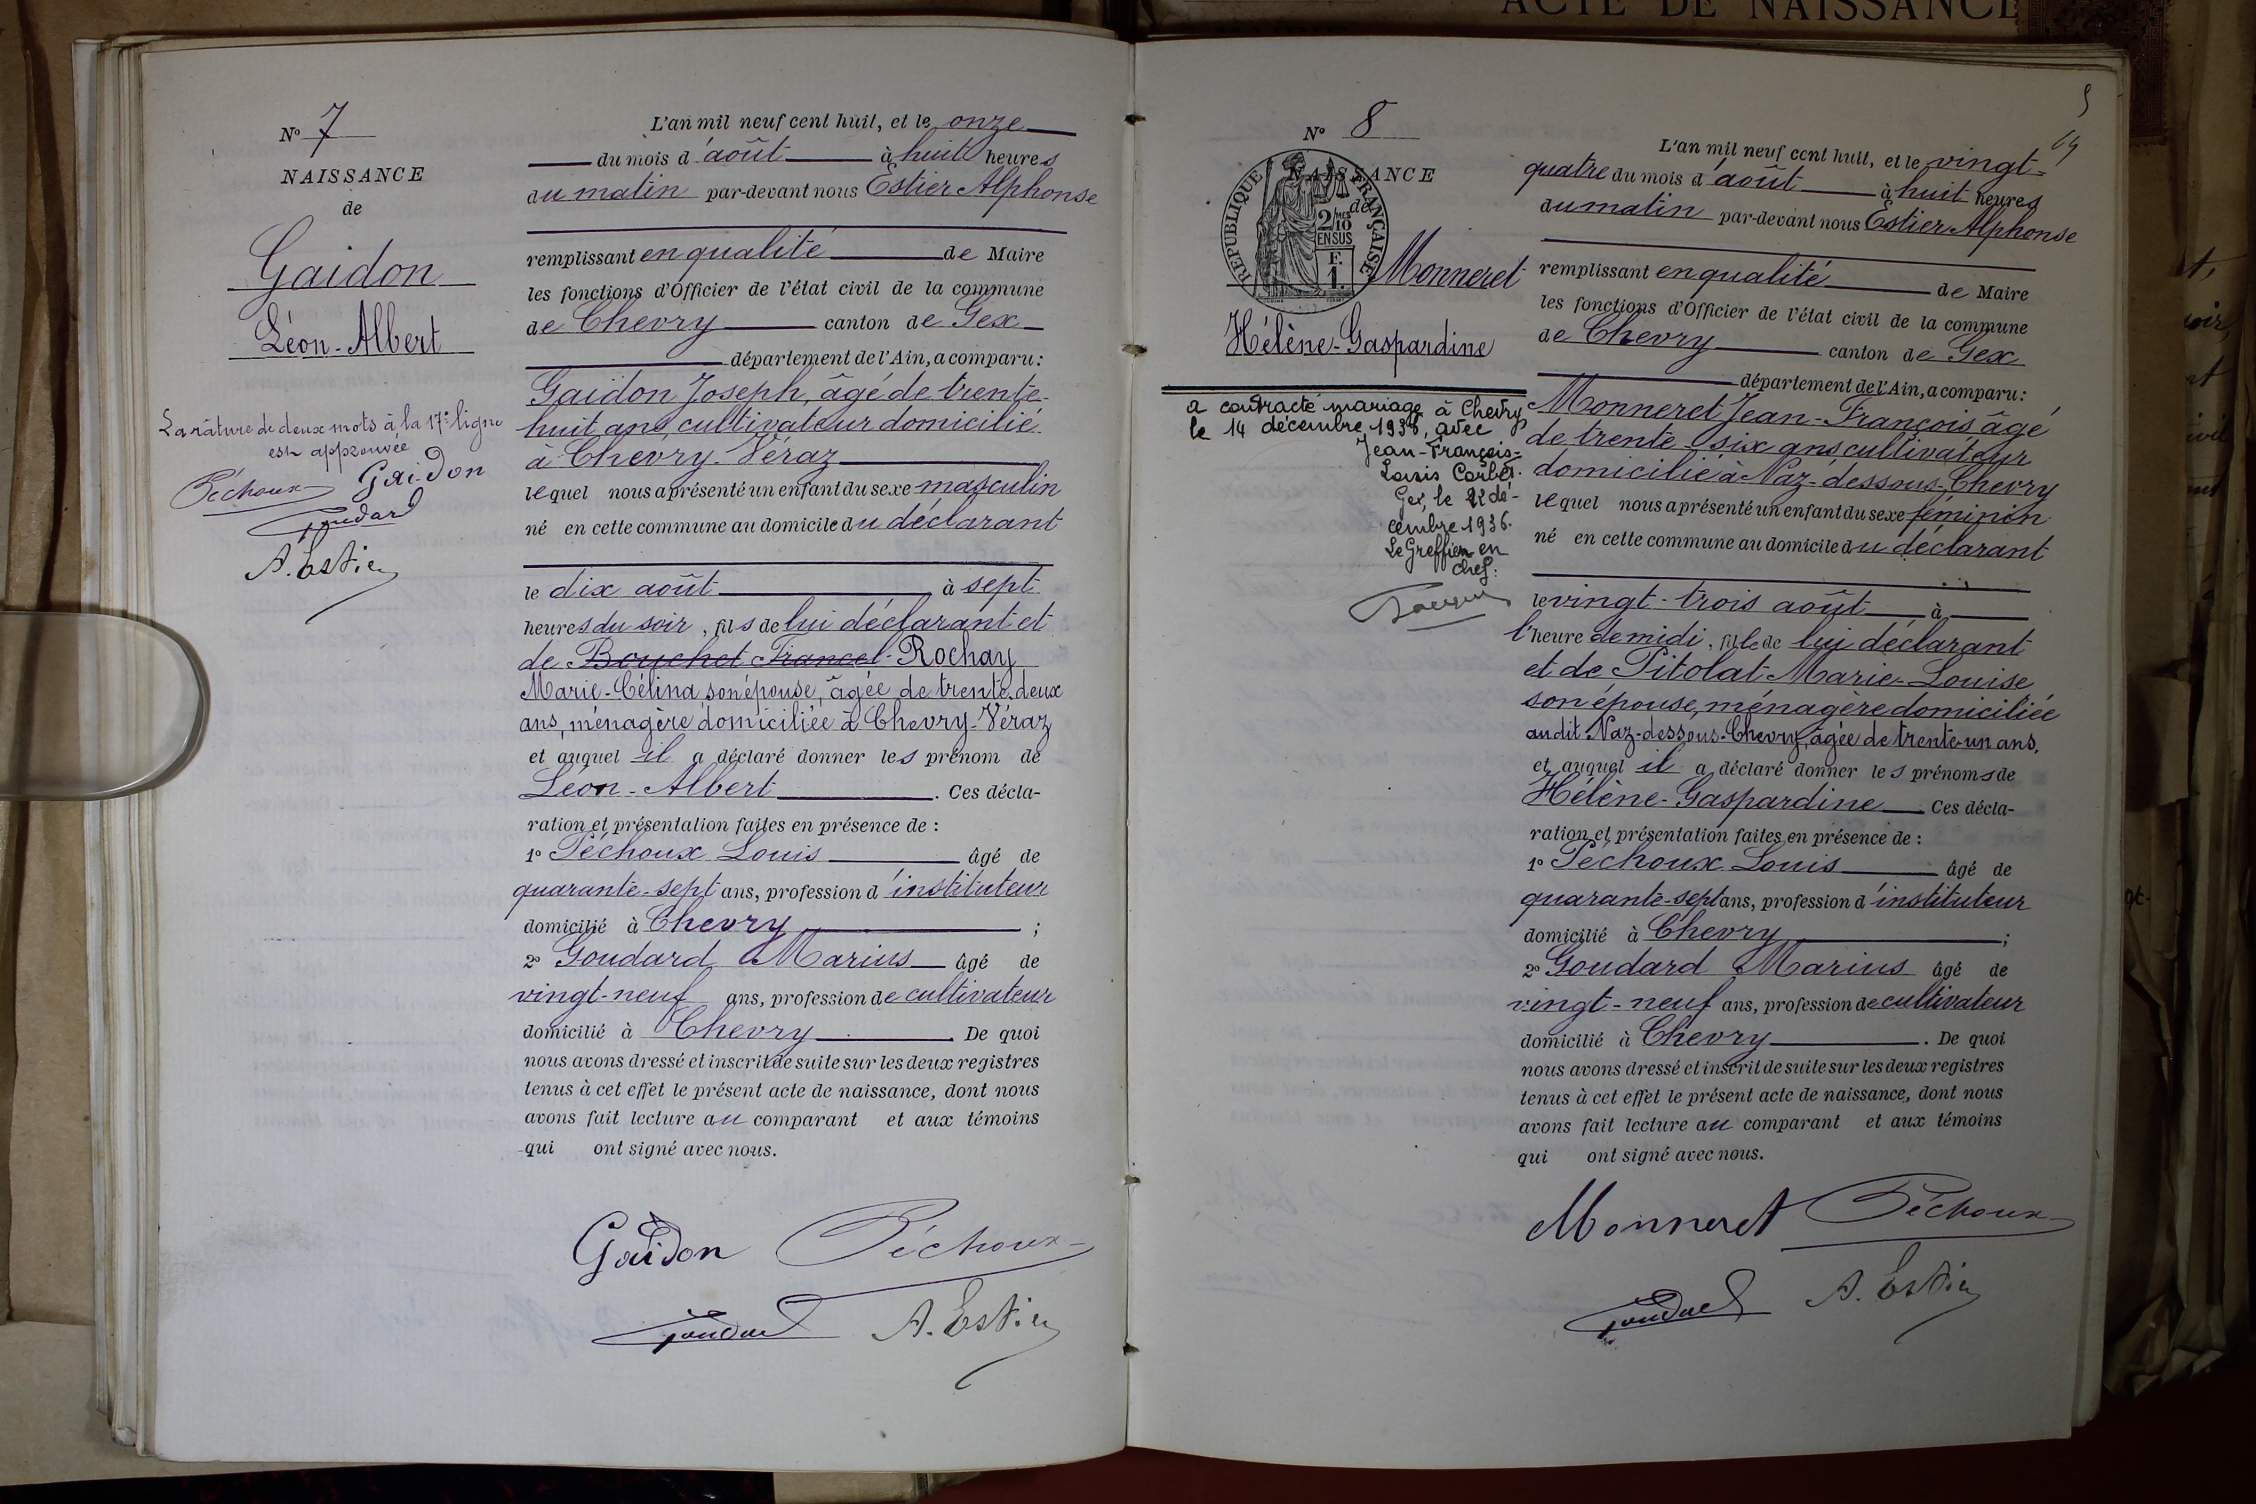 ACTE DE NAISSANCE
N° 7
NAISSANCE
de
Gaidon
Léon-Albert
La râture de deux mots à la 17e ligne
est approuvée
Péchoux Gaidon
Goudard
A. Estier
L'an mil neuf cent huit, et le onze
du mois d'août à huit heures
du matin par-devant nous Estier Alphonse
remplissant en qualité de Maire
les fonctions d'Officier de l'état civil de la commune
de Chevry canton de Gex
département de l'Ain, a comparu :
Gaidon Joseph, âgé de trente-
huit ans, cultivateur domicilié
à Chevry-Véraz
lequel nous a présenté un enfant du sexe masculin
né en cette commune au domicile du déclarant
le dix août à sept
heures du soir, fils de lui déclarant et
de Bouchet Francel- Rochay
Marie-Célina son épouse, âgée de trente-deux
ans, ménagère domiciliée à Chevry-Véraz
et auquel il a déclaré donner les prénom de
Léon-Albert. Ces décla-
ration et présentation faites en présence de :
1° Péchoux Louis âgé de
quarante-sept ans, profession d'instituteur
domicilié à Chevry ;
2° Goudard Marius âgé de
vingt-neuf ans, profession de cultivateur
domicilié à Chevry. De quoi
nous avons dressé et inscrit de suite sur les deux registres
tenus à cet effet le présent acte de naissance, dont nous
avons fait lecture au comparant et aux témoins
qui ont signé avec nous.
Gaidon Péchoux
Goudard A. Estier
N° 8
NAISSANCE
de
REPUBLIQUE FRANÇAISE
2/10
EN SUS
F.
1.
Monneret
Hélène-Gaspardine
a contracté mariage à Chevry
le 14 décembre 1936, avec
Jean-François-
Louis Corbet.
Gex, le 22 dé-
cembre 1936.
Le Greffier en
chef :
L'an mil neuf cent huit, et le vingt-
quatre du mois d'août à huit heures
du matin par-devant nous Estier Alphonse
remplissant en qualité de Maire
les fonctions d'Officier de l'état civil de la commune
de Chevry canton de Gex
département de l'Ain, a comparu :
Monneret Jean-François âgé
de trente-six ans cultivateur
domicilié à Naz-dessous-Chevry
lequel nous a présenté un enfant du sexe féminin
né en cette commune au domicile du déclarant
le vingt-trois août à
l'heure de midi, fille de lui déclarant
et de Pitolat Marie-Louise
son épouse, ménagère domiciliée
audit Naz-dessous-Chevry, âgée de trente-un ans,
et auquel il a déclaré donner les prénoms de
Hélène-Gaspardine Ces décla-
ration et présentation faites en présence de :
1° Péchoux Louis âgé de
quarante-sept ans, profession d'instituteur
domicilié à Chevry ;
2° Goudard Marius âgé de
vingt-neuf ans, profession de cultivateur
domicilié à Chevry. De quoi
nous avons dressé et inscrit de suite sur les deux registres
tenus à cet effet le présent acte de naissance, dont nous
avons fait lecture au comparant et aux témoins
qui ont signé avec nous.
Monneret Péchoux
Goudard A. Estier